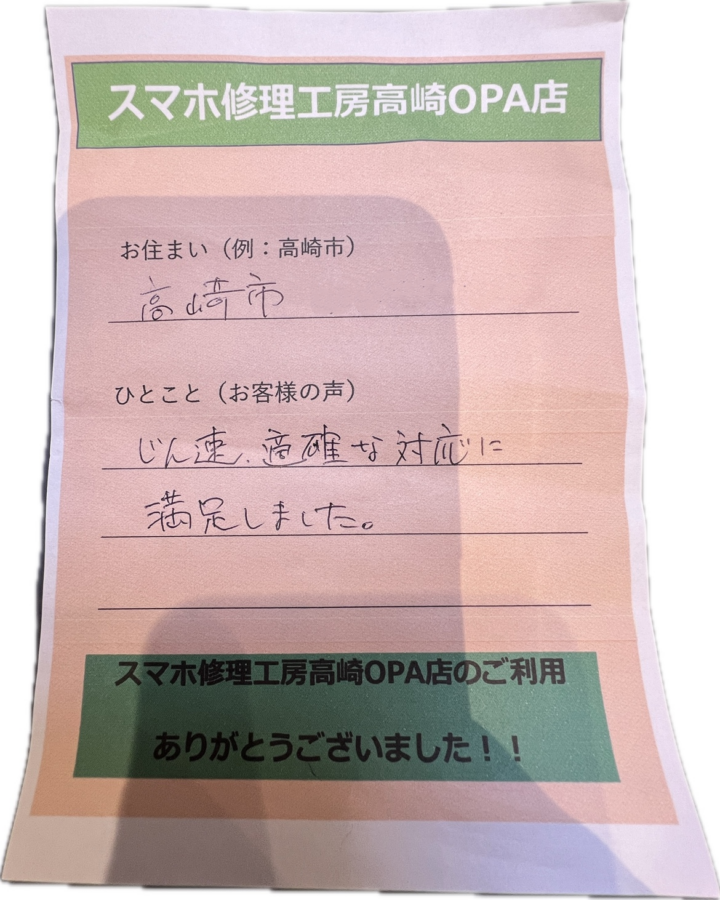 スマホ修理工房高崎OPA店
お住まい（例：高崎市）
高崎市
ひとこと（お客様の声）
じん速、適確な対応に
満足しました。
スマホ修理工房高崎OPA店のご利用
ありがとうございました！！